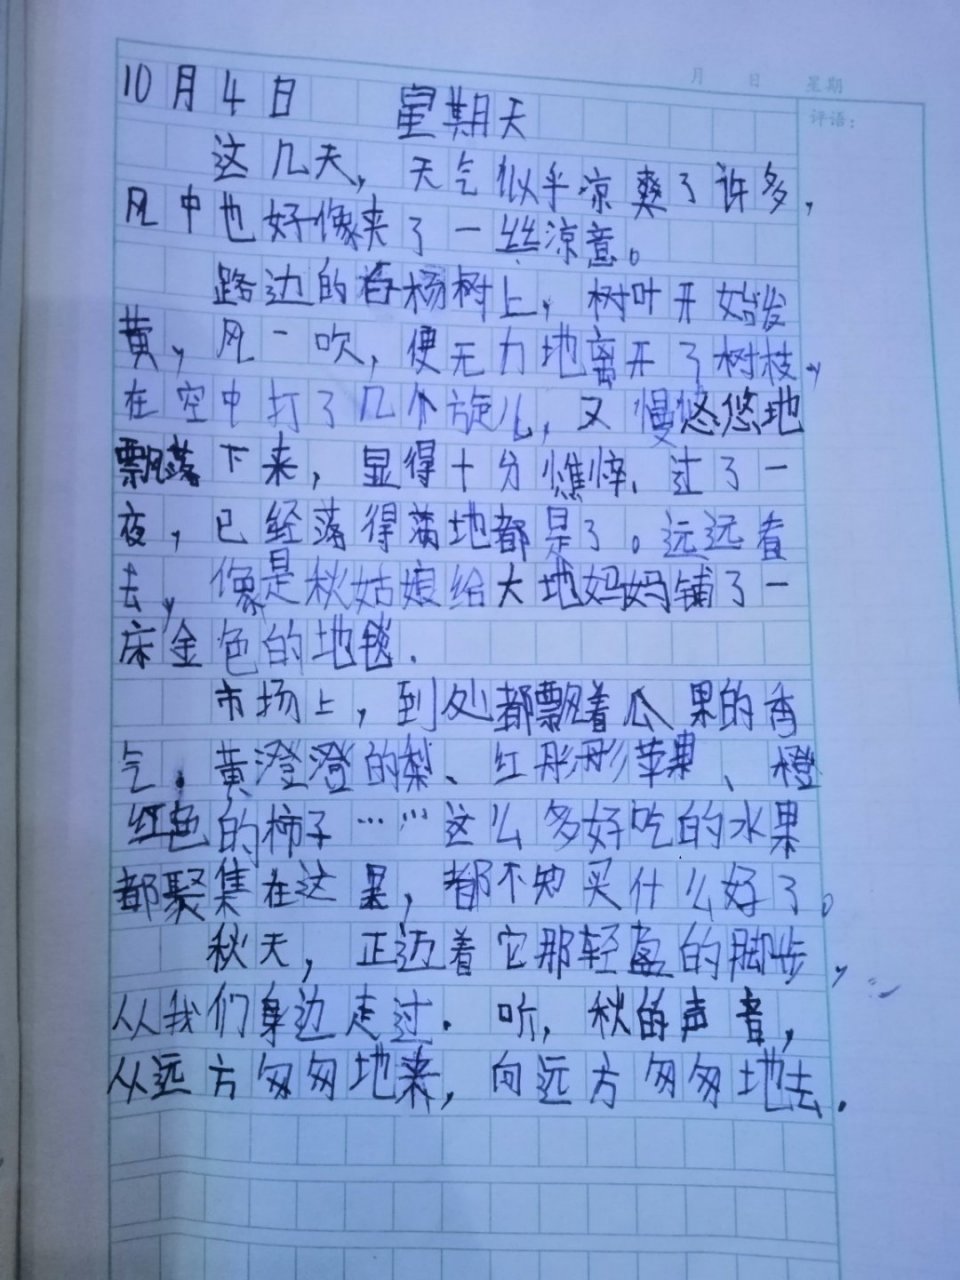 月 日 星期
评语:
10月4日 星期天
这几天,天气似乎凉爽了许多,
风中也好像夹了一丝凉意。
路边的白杨树上,树叶开始发
黄,风一吹,便无力地离开了树枝,
在空中打了几个旋儿,又慢悠悠地
飘落下来,显得十分憔悴.过了一
夜,已经落得满地都是了。远远看
去,像是秋姑娘给大地妈妈铺了一
床金色的地毯.
市场上,到处都飘着瓜果的香
气.黄澄澄的梨、红彤彤苹果、橙
红色的柿子……这么多好吃的水果
都聚集在这里,都不知买什么好了。
秋天,正迈着它那轻盈的脚步,
从我们身边走过.听,秋的声音,
从远方匆匆地来,向远方匆匆地去.